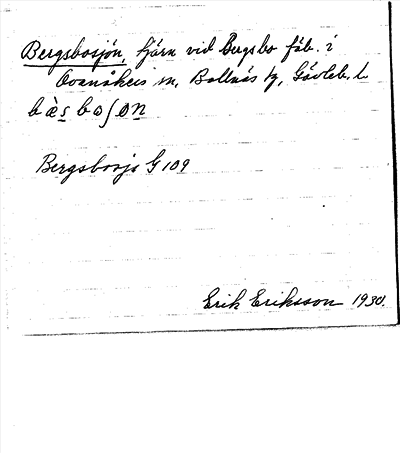 Bergsbosjön, tjärn vid Bergsbo fäb. i
Ovanåkers sn, Bollnäs tg, Gävleb. l.
bæ̀s bo ʃ ωn
Bergsbosjo G 109
Erik Eriksson 1930.